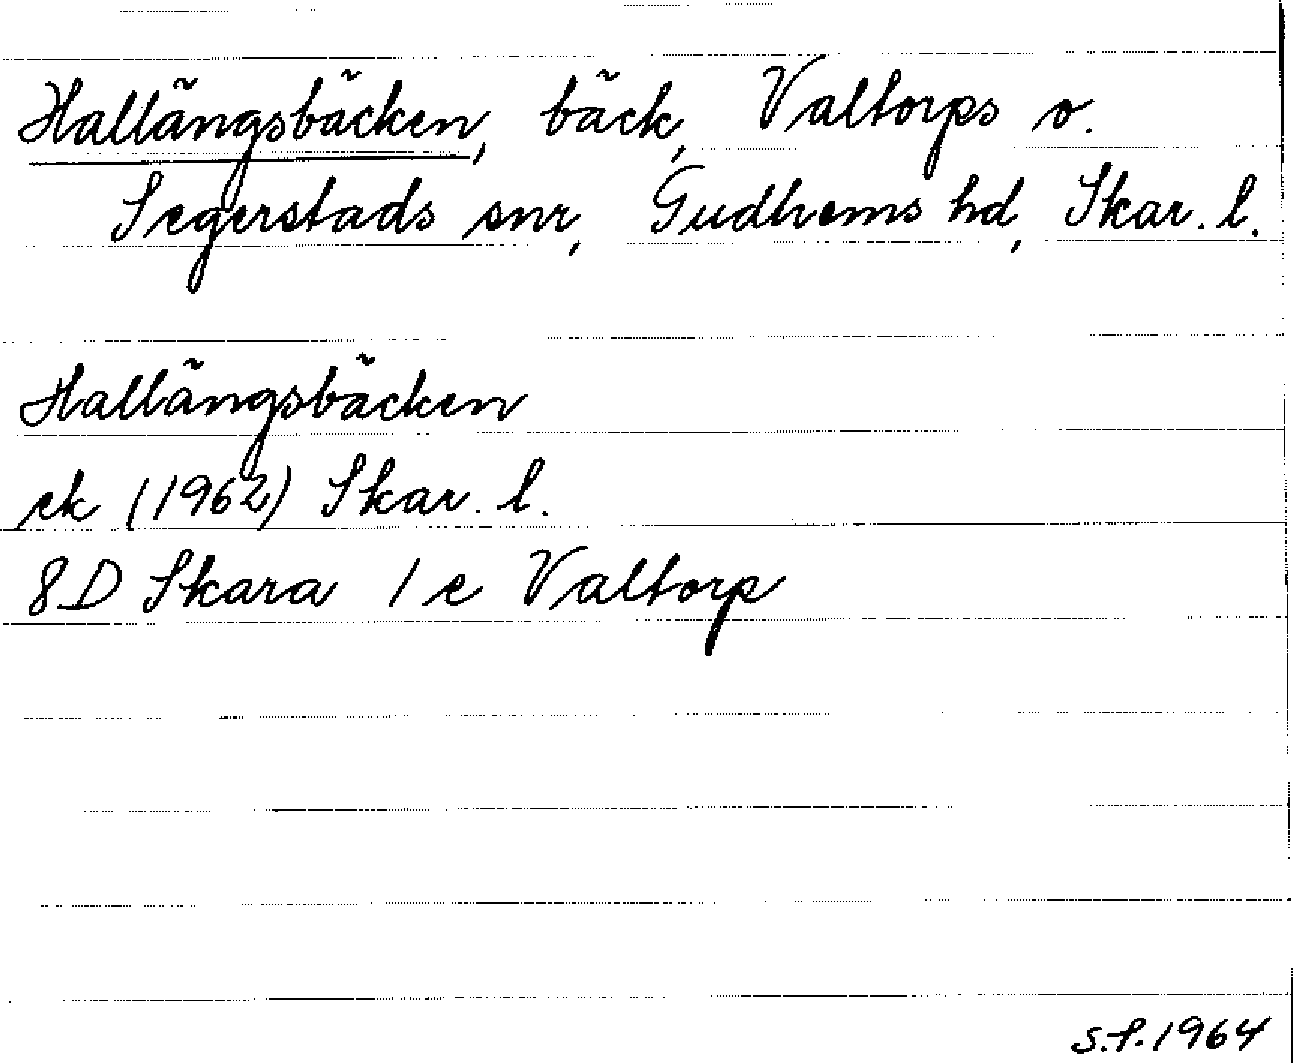 Hallängsbäcken, bäck, Valtorps o.
Segerstads snr, Gudhems hd, Skar. l.
Hallängsbäcken
ek (1962) Skar. l.
8D Skara 1e Valtorp
S.F. 1964